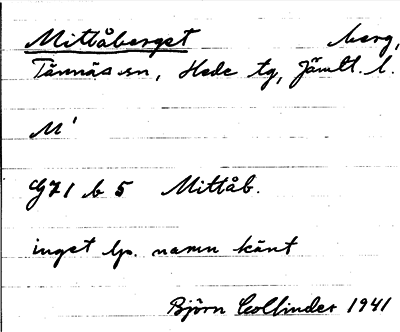 Mittåberget berg,
Tännäs sn, Hede tg, Jämtl. l.
M'
G71 b 5 Mittåb.
inget lp. namn känt
Björn Collinder 1941